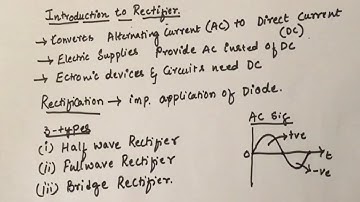 Introduction to Rectifier.
→ Converts Alternating Current (AC) to Direct Current (DC)
→ Electric Supplies Provide AC Insted of DC
→ Ectronic devices & Circuits need DC
Rectification → imp. application of Diode.
3-types
(i) Half wave Rectifier
(ii) Fullwave Rectifier
(iii) Bridge Rectifier.
AC Sig
+ve
0
t
-ve